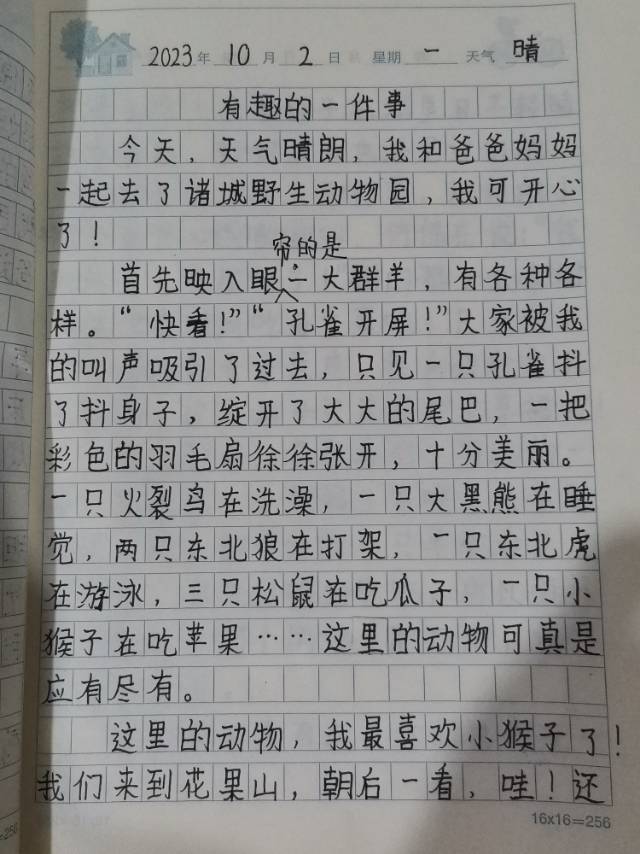 2023年 10月 2日 星期 一 天气 晴
有趣的一件事
今天，天气晴朗，我和爸爸妈妈
一起去了诸城野生动物园，我可开心
了！
帘的是
首先映入眼一大群羊，有各种各
样。“快看！”“孔雀开屏！”大家被我
的叫声吸引了过去，只见一只孔雀抖
了抖身子，绽开了大大的尾巴，一把
彩色的羽毛扇徐徐张开，十分美丽。
一只火裂鸟在洗澡，一只大黑熊在睡
觉，两只东北狼在打架，一只东北虎
在游泳，三只松鼠在吃瓜子，一只小
猴子在吃苹果……这里的动物可真是
应有尽有。
这里的动物，我最喜欢小猴子了！
我们来到花果山，朝后一看，哇！还
16x16=256